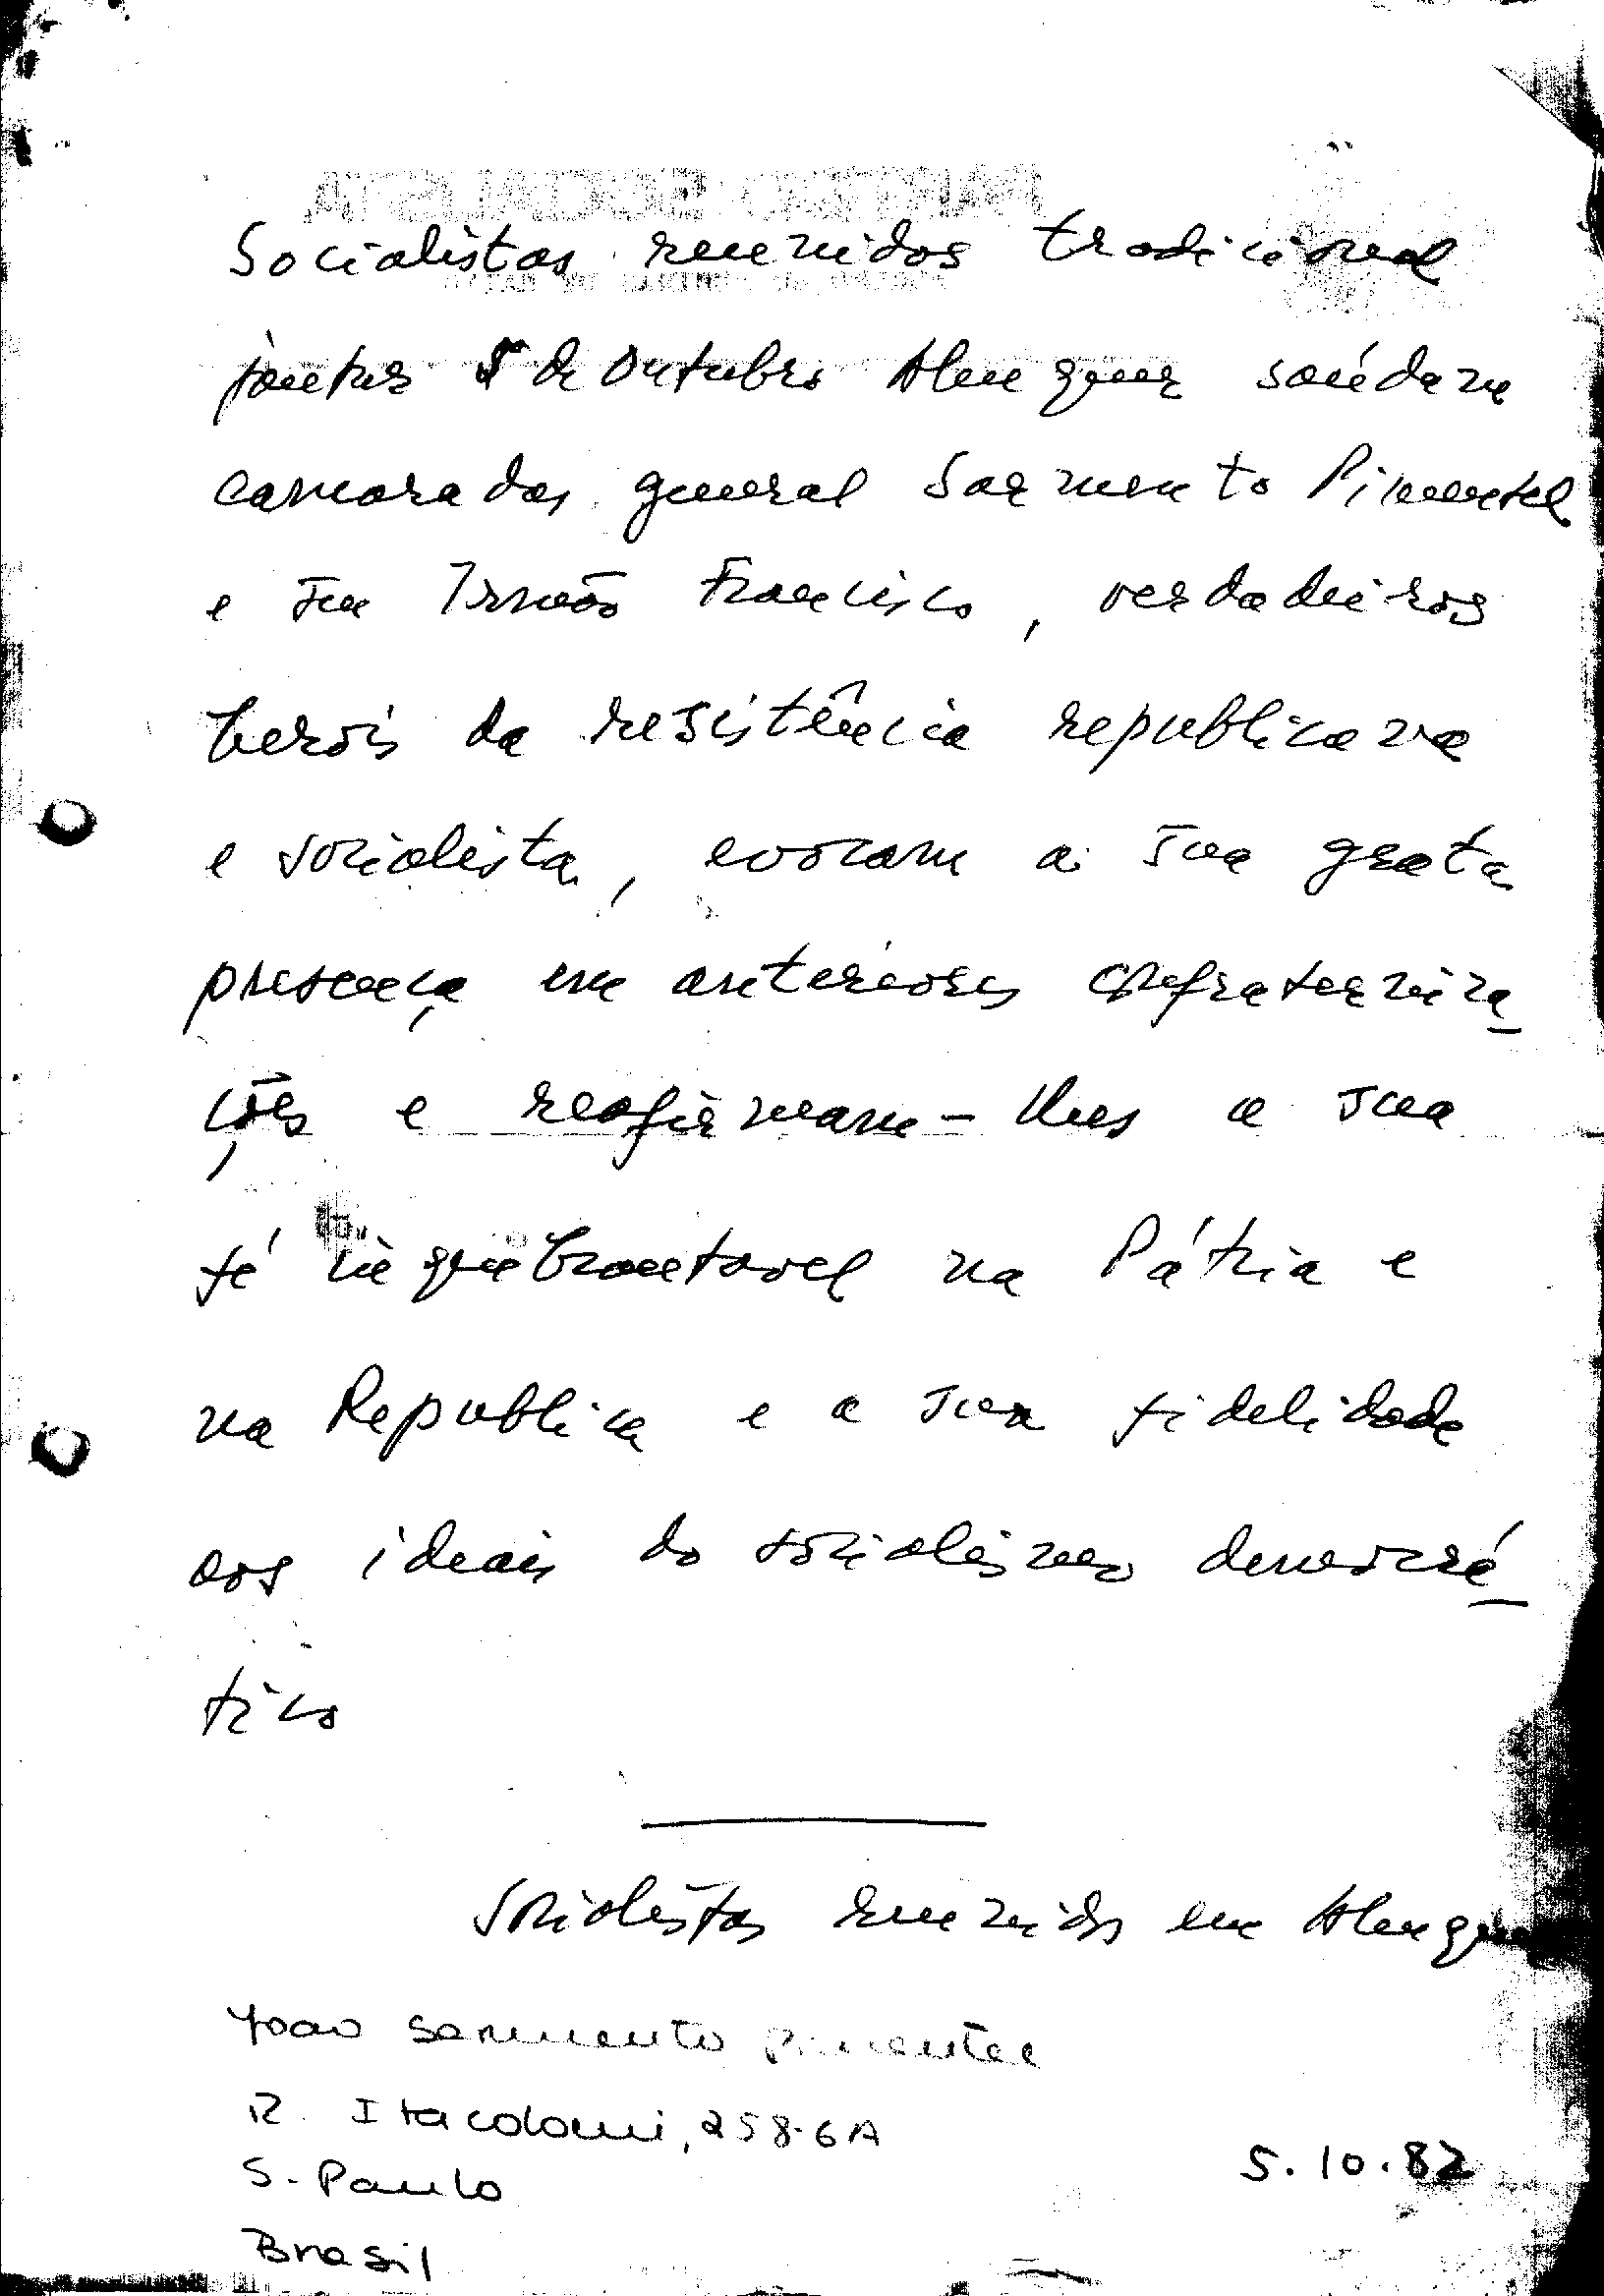 Socialistas reunidos tradicional
jantar 5 de Outubro Alenquer saúdam
camaradas general Sarmento Pimentel
e seu Irmão Francisco, verdadeiros
herois da resistência republicana
e socialista, evocam a sua grata
presença em anteriores confraterniza-
ções e reafirmam-lhes a sua
fé inquebrantavel na Pátria e
na Republica e a sua fidelidade
aos ideais do socialismo democrá-
tico
Socialistas reunidos em Alenquer
João Sarmento Pimentel
R. Itacolomi, 258-6A
S. Paulo
Brasil
5.10.82